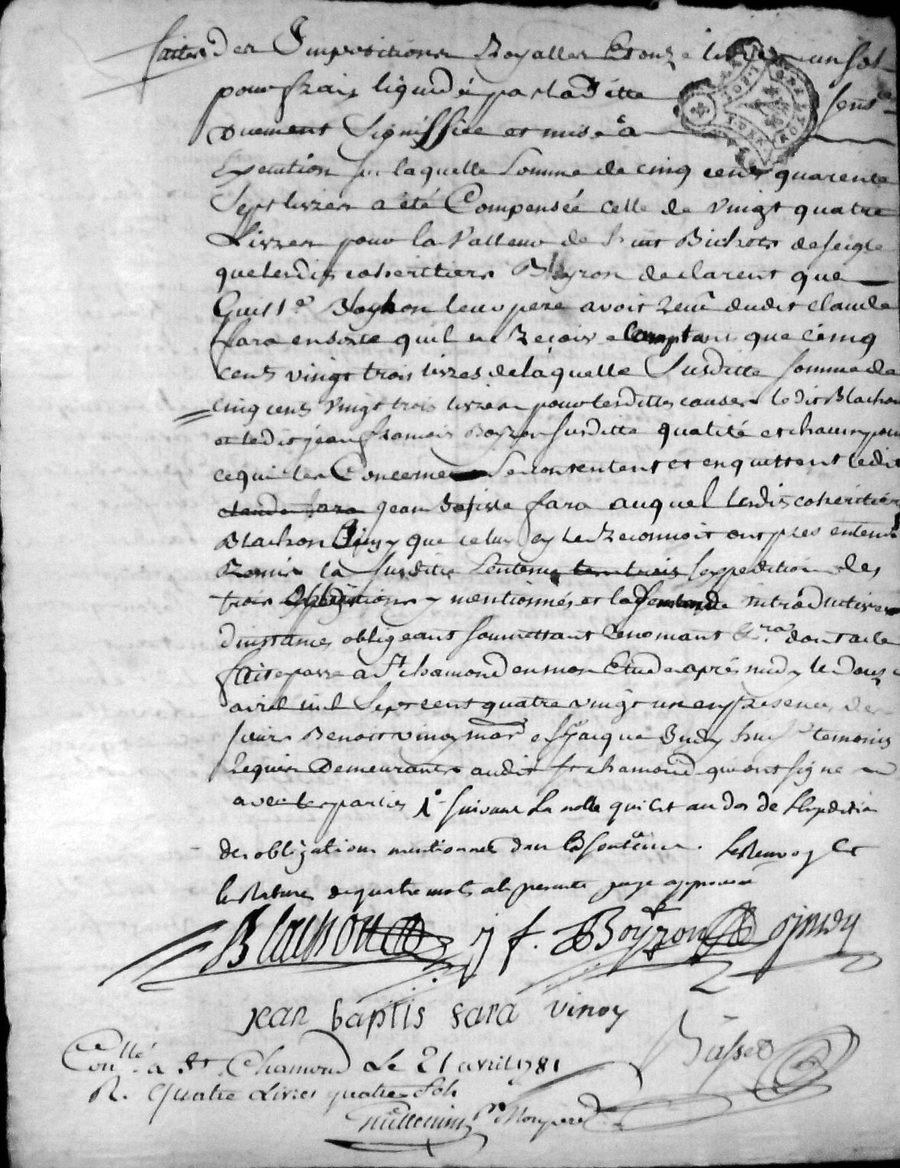 faittes des Impositions Royalles et onze livres un sol
pour frais liquidés par la ditte sens
duement Signiffiée et mise à
Execution sur laquelle Somme de cinq cens quarente
Sept livres a été Compensée celle de vingt quatre
Livres pour la Valleur de huit Bichets de seigle
que lesdis coheritiers declarent que
leur pere avoit recû dudit claude
fara ensorte qu'il ne reçoive comptant que Cinq
cens vingt trois livres de laquelle Susditte somme de
Cinq cens vingt trois livres pour lesdittes causes ledit Blachon
et ledit jean françois Boyron susditte qualité et chacun pour
ce qui les Concerne Se contentent et en quittent ledit
claude fara jean Baptiste fara auquel lesdis coheritiers
Blachon ainsy que celuy cy le Reconnoit ont presentement
Remis la Susditte Sentence l'expedition des
trois obligations y mentionnés et la demande introductive
d'instance, obligeant soumettant Renonçant dont acte
fait et passé à St chamond en mon Etude après midy le douze
avril mil Sept cent quatre vingt un en presence de
sieurs Benoit vinoy mar et Jacque temoins
Requis Demeurants audit St chamond qui ont signé
avec les parties 1° suivant la notte qui est au dos de l'expedition
des obligations mentionnés dans la Sentence. le Renvoy et
la Rature de quatre mots a la presente page approuvé
Blachon j f. Boyron
jean baptis fara vinoy
Collé
Con. a St. Chamond Le 21 avril 1781
R. Quatre Livres quatre Sols